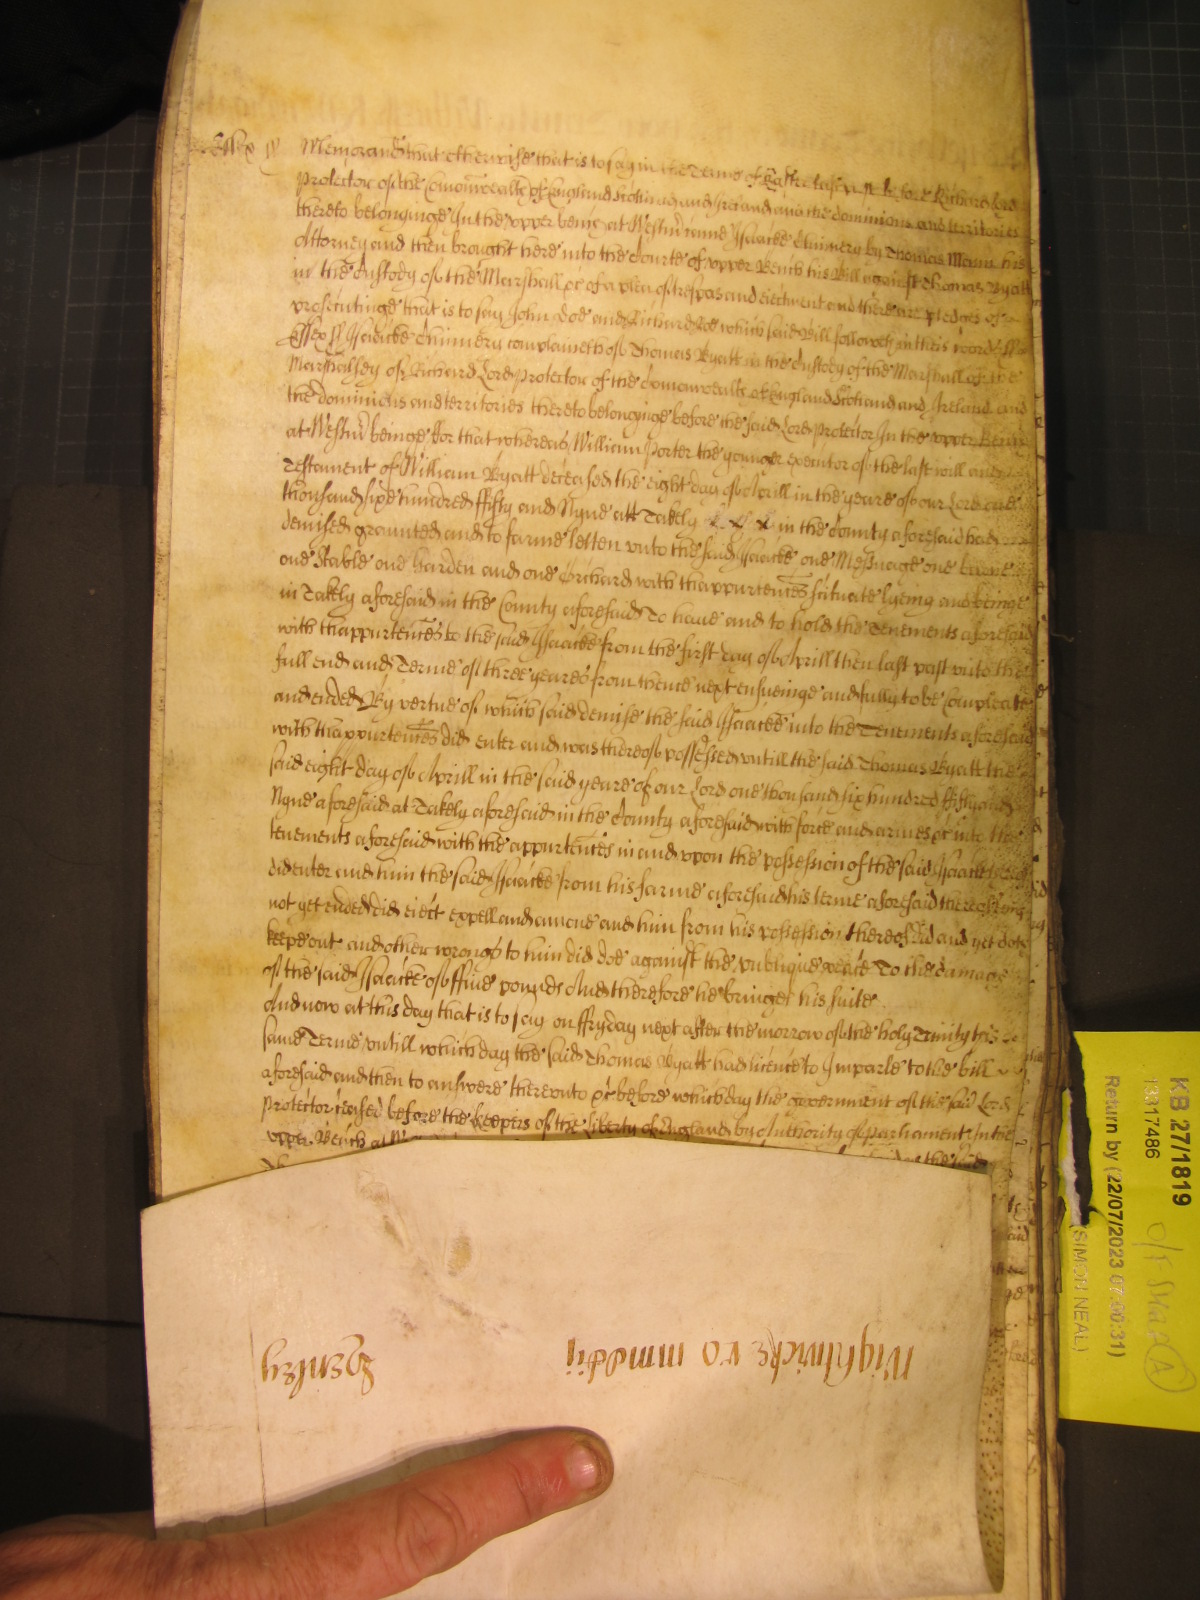 Essex ss Memorand that otherwise that is to say in the Terme of Easter last past before Richard Lord
Protector of the Comonwealth of England Scotland and Ireland and the dominions and territories
thereto belonginge In the upper bench at Westm came Isaacke Chimery by Thomas Mann his
Attorney and then brought here into the Courte of upper Bench his Bill against Thomas Byatt
in the Custody of the Marshall &c of a plea of trespas and eiectment and there are pledges of
prosecutinge that is to say John Doe and Richard Roe which said Bill followeth in theis words ss
Essex ss Isaacke Chimery complaineth of Thomas Byatt in the Custody of the Marshall of the
Marshalsey of Richard Lord Protector of the Comonwealth of England Scotland and Ireland and
the dominions and territories thereto belonginge before the said Lord Protector In the upper Bench
at Westm beinge ffor that whereas William Porter the younger executor of the last will and
Testament of William Byatt deceased the eight day of Aprill in the yeare of our Lord one
thousand six hundred ffifty and Nyne att Takely in the County aforesaid had
demised graunted and to farme letten unto the said Isaacke one Messuage one barne
one Stable one Garden and one Orchard with thappurtences scituate lyeing and beinge
in Takely aforesaid in the County aforesaid To have and to hold the Tenements aforesaid
with thappurtences to the said Isaacke from the first day of Aprill then last past unto the
full end and Terme of three yeares from thence next ensueinge and fully to be compleate
and ended By vertue of which said demise the said Isaacke into the Tenements aforesaid
with thappurtences did enter and was thereof possessed untill the said Thomas Byatt the
said eight day of Aprill in the said yeare of our Lord one thousand six hundred ffifty and
Nyne aforesaid at Takely aforesaid in the County aforesaid with force and armes &c into the
tenements aforesaid with the appurtences in and upon the possession of the said Isaacke
did enter and him the said Isaacke from his farme aforesaid his terme aforesaid thereof being
not yet ended did eiect expell and amove and him from his possession thereof did and yet doth
keepe out and other wrongs to him did doe against the publique peace To the damage
of the said Isaacke of ffive pounds And therefore he bringes his suite
And now at this day that is to say on ffryday next after the morrow of the holy Trinity this
same Terme untill which day the said Thomas Byatt had licence to Imparle to the bill
aforesaid and then to answere thereunto &c before which day the government of the said Lord
Protector ceased before the keepers of the liberty of England by Authority of parliament In the
upper Bench at
Nightwicke ro
Henley
KB 27/1819
13317486
Return by (22/07/2023 07:00:31)
(SIMON NEAL)
A